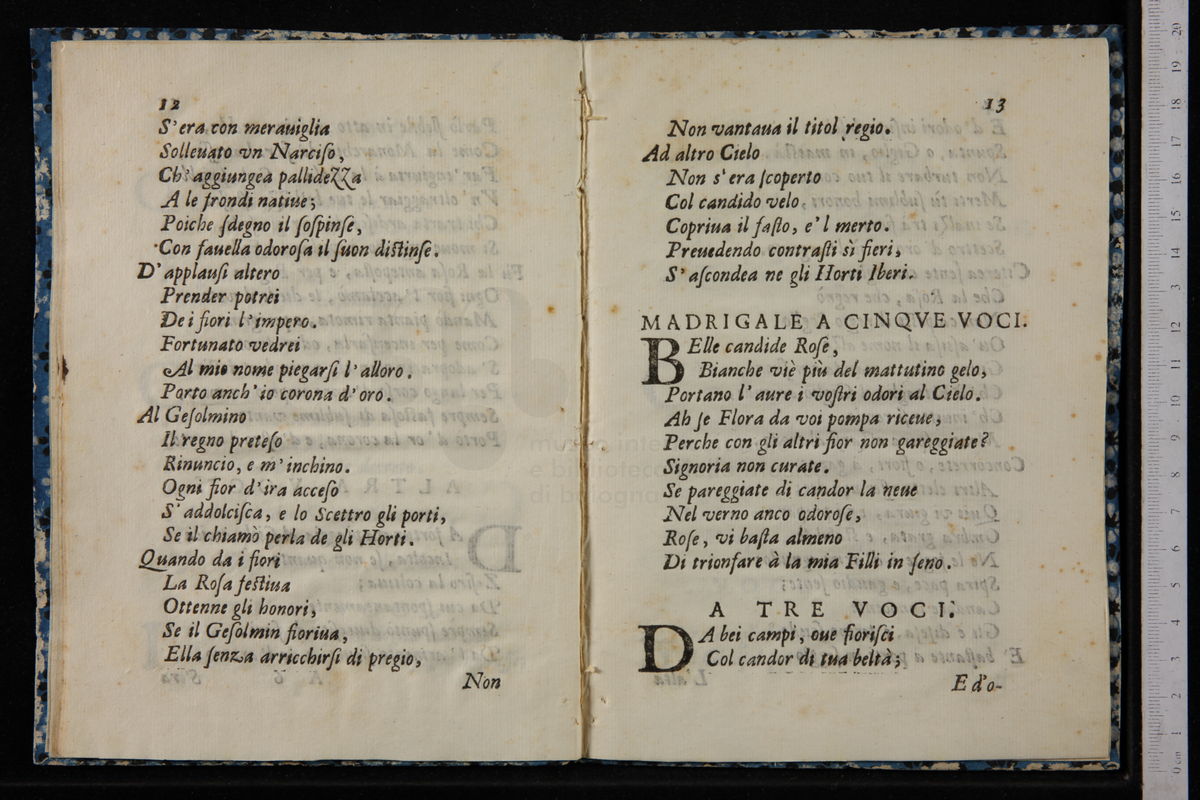 12
S'era con merauiglia
Solleuato vn Narciſo,
Ch'aggiungea pallideZZa
A le frondi natiue;
Poiche ſdegno il ſoſpinſe,
Con fauella odoroſa il ſuon diſtinſe.
D'applauſi altero
Prender potrei
De i fiori l'impero.
Fortunato vedrei
Al mio nome piegarſi l'alloro.
Porto anch'io corona d'oro.
Al Geſolmino
Il regno preteſo
Rinuncio, e m'inchino.
Ogni fior d'ira acceſo
S'addolciſca, e lo Scettro gli porti,
Se il chiamò perla de gli Horti.
Quando da i fiori
La Roſa feſtiua
Ottenne gli honori,
Se il Geſolmin fioriua,
Ella ſenza arricchirſi di pregio,
Non
13
Non vantaua il titol regio.
Ad altro Cielo
Non s'era ſcoperto
Col candido velo,
Copriua il faſto, e'l merto.
Preuedendo contraſti sì fieri,
S'aſcondea ne gli Horti Iberi.
MADRIGALE A CINQVE VOCI.
BElle candide Roſe,
Bianche viè più del mattutino gelo,
Portano l'aure i voſtri odori al Cielo.
Ah ſe Flora da voi pompa riceue,
Perche con gli altri fior non gareggiate?
Signoria non curate.
Se pareggiate di candor la neue
Nel verno anco odoroſe,
Roſe, vi baſta almeno
Di trionfare à la mia Filli in ſeno.
A TRE VOCI.
DA bei campi, oue fioriſci
Col candor di tua beltà;
E d'o-